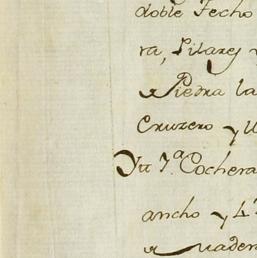 doble Techo
ra, Pilares
Piedra la
Cruzero y
Cochera
ancho y 4